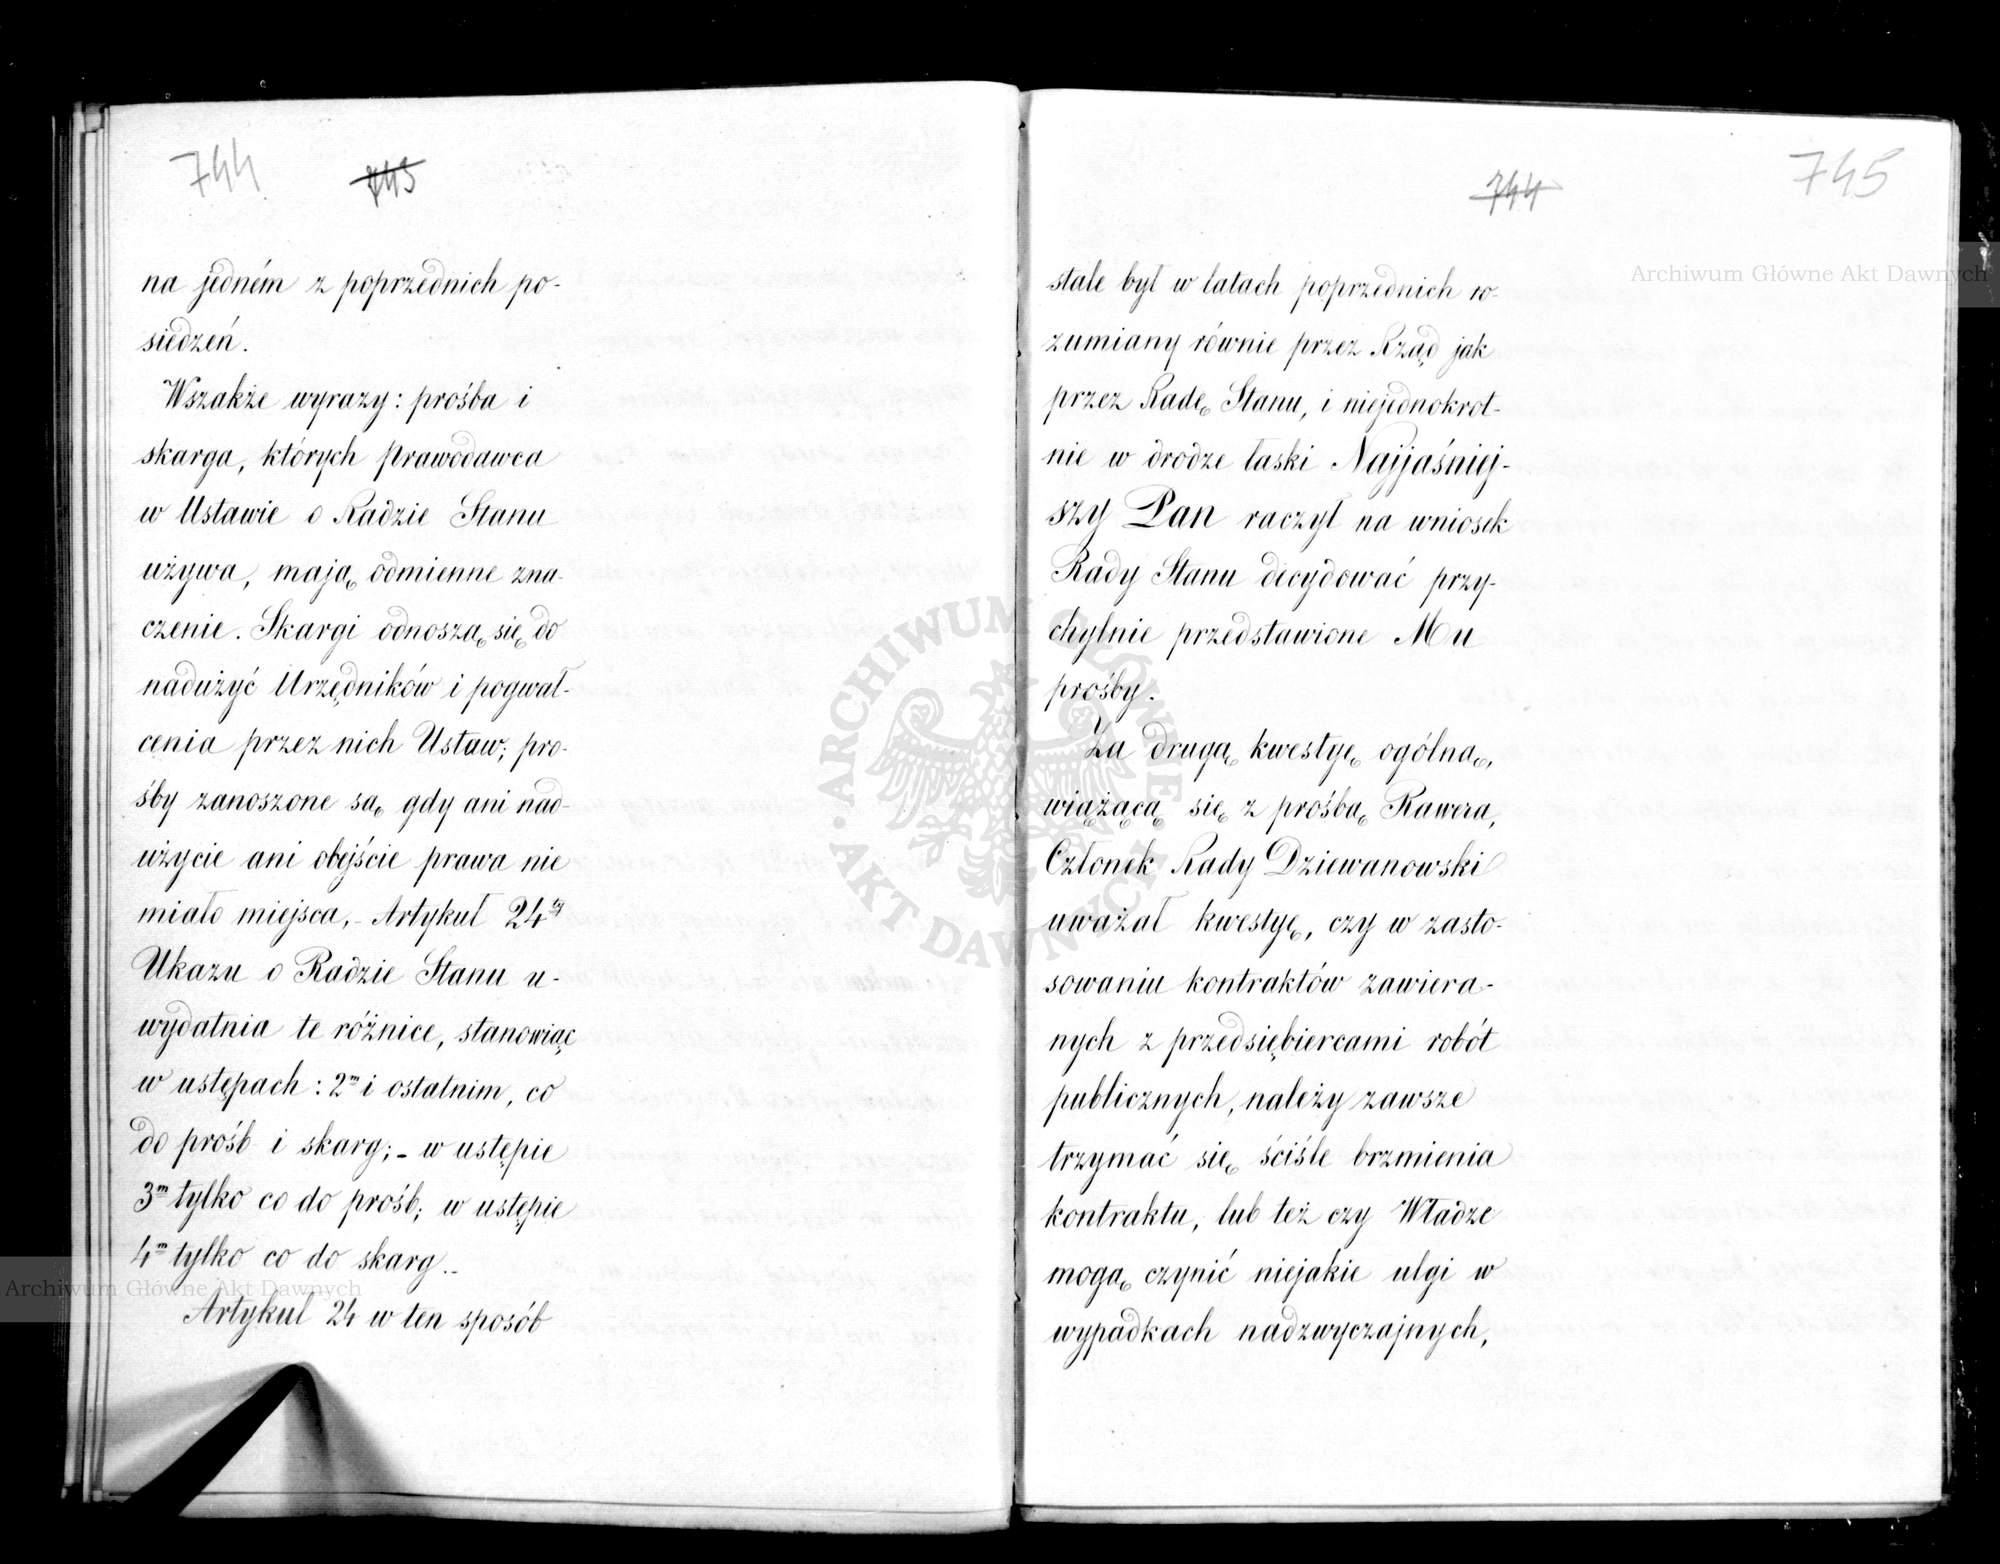 744 743
na jedném z poprzednich po-
siedzeń.
Wszakże wyrazy: prośba i
skarga, których Prawodawca
w Ustawie o Radzie Stanu
używa, mają odmienne zna-
czenie. Skargi odnoszą się do
nadużyć Urzędników i pogwał-
cenia przez nich Ustaw; pro-
śby zanoszone są gdy ani nad-
użycie ani obejście prawa nie
miało miejsca,- Artykuł 24ty
Ukazu o Radzie Stanu u-
wydatnia te różnice, stanowiąc
w ustępach: 2m i ostatnim, co
do prośb i skarg;- w ustępie
3m tylko co do prośb; w ustępie
4m tylko co do skarg..
Artykul 24 w ten sposób
744 745
stale był w latach poprzednich ro-
zumiany równie przez Rząd jak
przez Radę Stanu, i niejednokrot-
nie w drodze łaski Najjaśniej-
szy Pan raczył na wniosek
Rady Stanu decydować przy-
chylnie przedstawione Mu
prośby.
Za drugą kwestyę ogólną,
wiążącą się z prośbą Rawera,
Członek Rady Dziewanowski
uważał kwestyę, czy w zasto-
sowaniu kontraktów zawiera-
nych z przedsiębiercami robót
publicznych, należy zawsze
trzymać się ściśle brzmienia
kontraktu, lub też czy Władze
mogą czynić niejakie ulgi w
wypadkach nadzwyczajnych,
Archiwum Główne Akt Dawnych
Archiwum Główne Akt Dawnych
ARCHIWUM GŁÓWNE AKT DAWNYCH